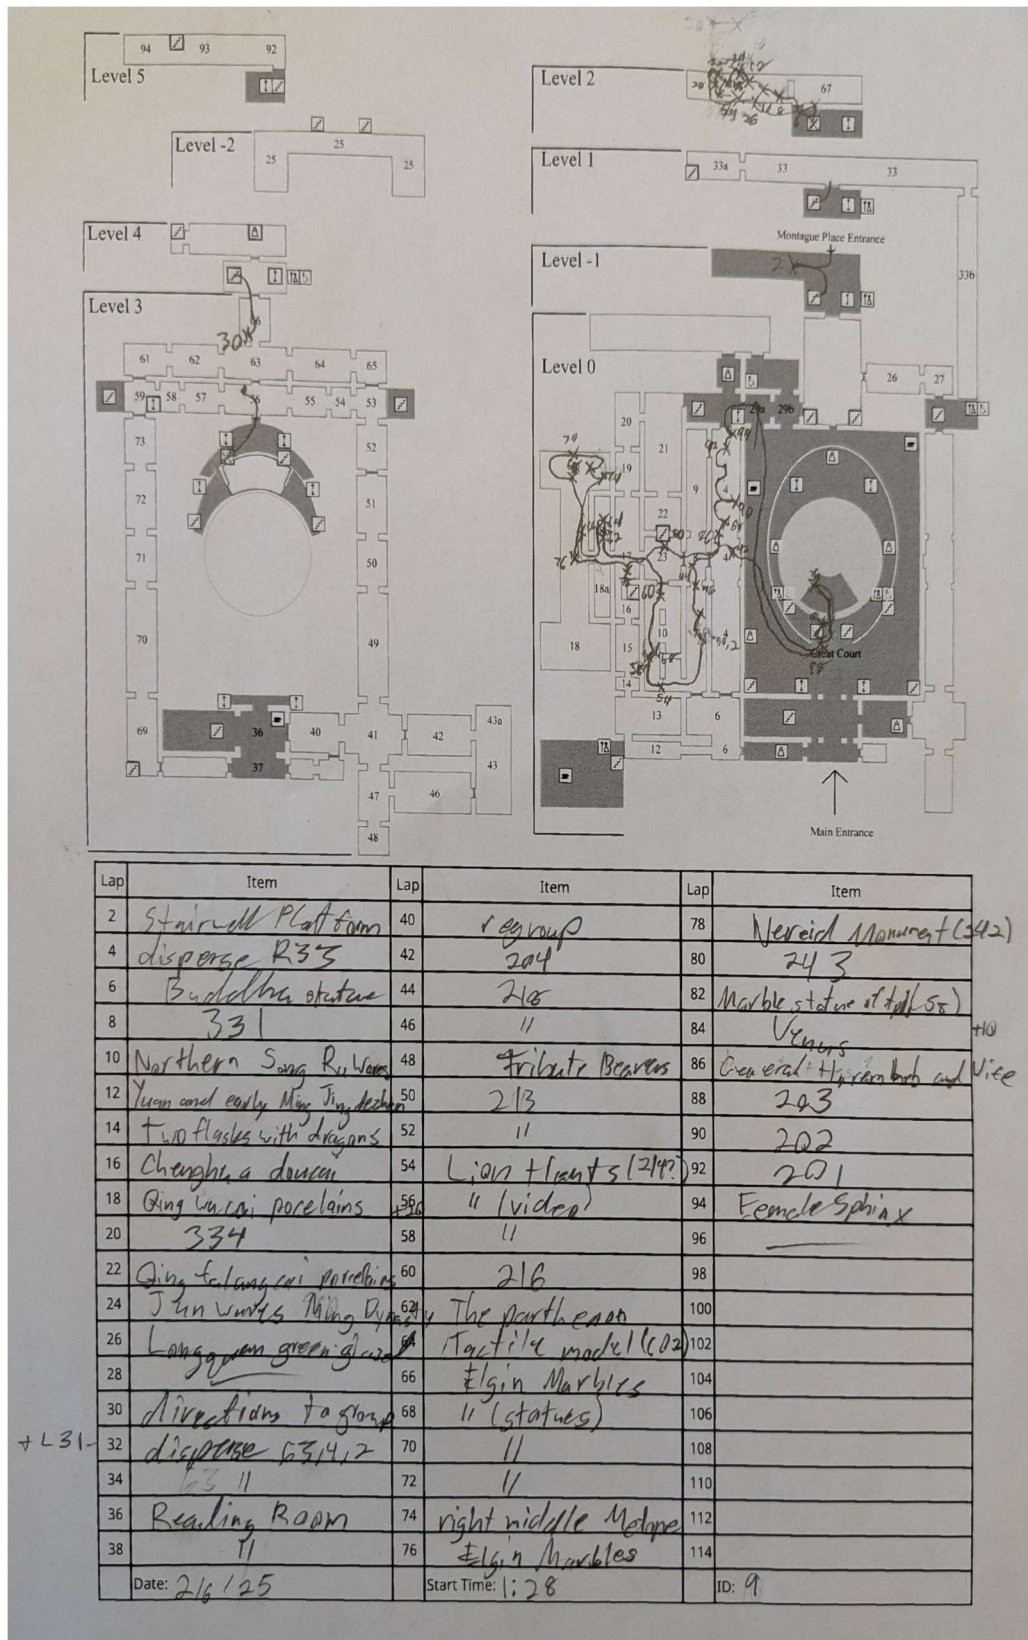 94
93
92
Level 5
Level 2
67
Level -2
25
25
25
Level 1
33a
33
33
Montague Place Entrance
Level 4
Level -1
2
33b
Level 3
30
61
62
63
64
65
59
58
57
56
55
54
53
73
52
72
51
71
50
70
49
69
36
40
41
42
43a
43
37
47
46
48
Level 0
26
27
20
21
29a
29b
19
9
22
23
76
18a
60
16
18
15
10
14
54
13
6
12
6
Great Court
Main Entrance
Lap Item Lap Item Lap Item
2 Stairwell Platform 40 regroup 78 Nereid Monument (242)
4 disperse R33 42 204 80 243
6 Buddha statue 44 218 82 Marble statue of (58)
8 331 46 " 84 Venus +10
10 Northern Song Ru Wares 48 Tribute Bearers 86 General Horemheb and Wife
12 Yuan and early Ming Jingdezhen 50 213 88 203
14 Two flasks with dragons 52 " 90 202
16 Chenghua doucai 54 Lion Hunts (214?) 92 201
18 Qing wucai porcelains 56 " (video) 94 Female Sphinx
20 334 58 " 96
22 Qing falangcai porcelains 60 216 98
24 Jun wares Ming Dynasty 62 The parthenon 100
26 Longquan green glazed 64 Tactile model (CO2) 102
28 66 Elgin Marbles 104
30 directions to group 68 " (statues) 106
+L31- 32 disperse 63,4,2 70 " 108
34 63 " 72 " 110
36 Reading Room 74 right middle Metope 112
38 " 76 Elgin Marbles 114
Date: 2/6/25 Start Time: 1:28 ID: 9